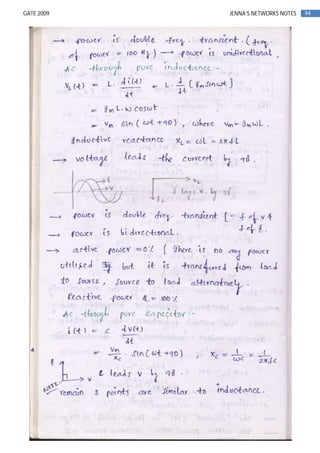 GATE 2009 JENNA'S NETWORKS NOTES 94
→ power is double freq. transient. (freq.
of power = 100 Hz) → power is unidirectional.
AC through pure inductance :-
L. di(t)/dt = L. d/dt [ Im sinωt ]
= Im L.ω cosωt
= Vm. sin (ωt +90), where Vm = Im ωL
Inductive reactance XL = ωL = 2πfL
→ voltage leads the current by 90.
I lags V by 90.
→ power is double freq. transient
→ power is bi directional.
→ active power = 0% [ There is no power
utilised but it is transferred from load
to source, source to load alternatively.
Reactive power Q = 100%
AC through pure capacitor :-
i(t) = c. dv(t)/dt
= Vm/Xc . sin (ωt +90) , Xc = 1/ωc = 1/2πfc
I
V
I leads V by 90.
NOTE remain 3 points are similar to inductance.